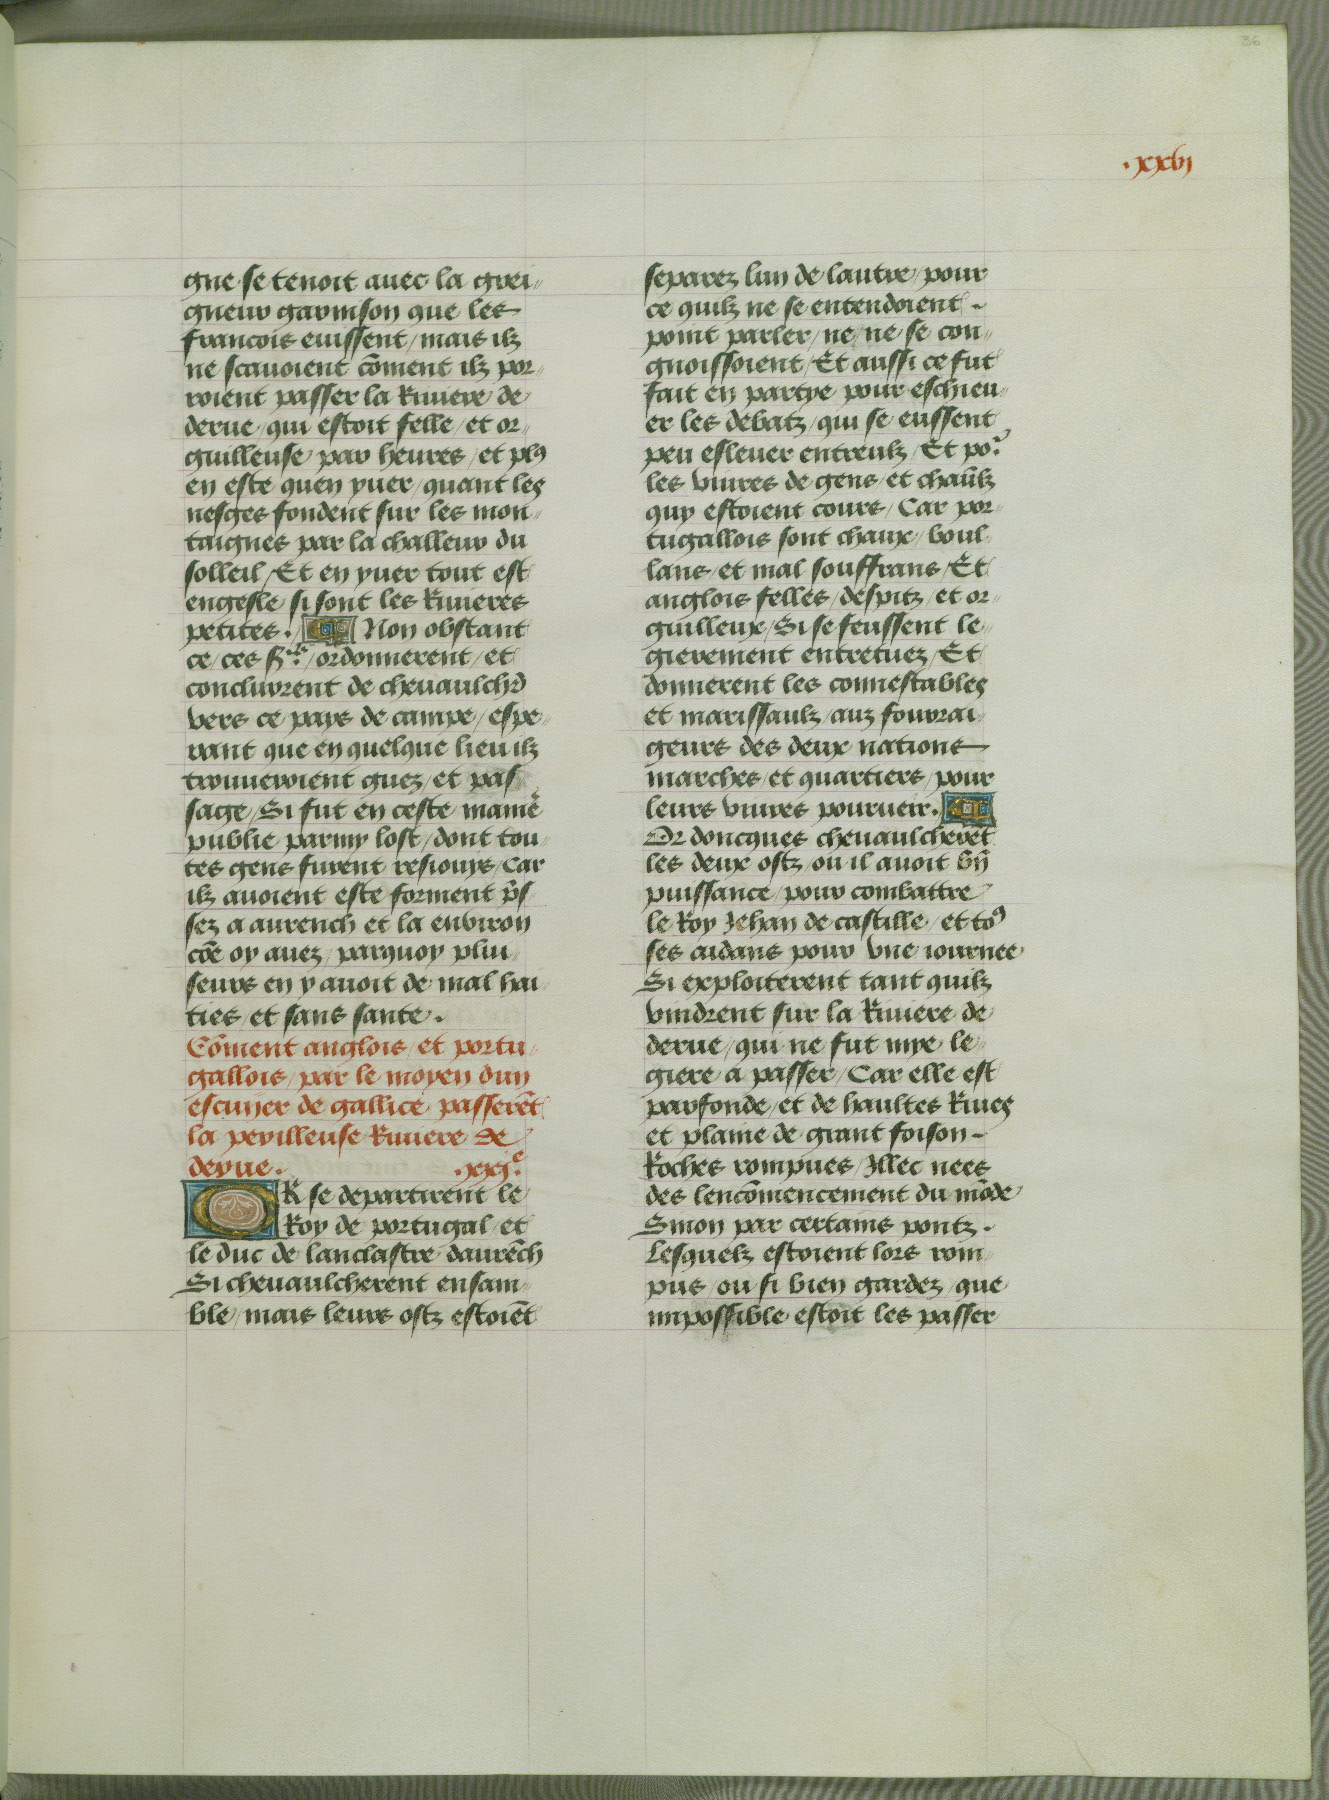 36
.xxvi
gne se tenoit auec la grei〃
gneur garnison que les
francois euissent / mais ilz
ne scauoient cōment ilz por〃
roient passer la Riuiere de
derne / qui estoit felle / et or〃
guilleuse par heures / et plꝰ
en este quen yuer / quant les
nesges fondent sur les mon〃
taignes par la challeur du
solleil / Et en yuer tout est
engesle si sont les Riuieres
petites. / ¶ Non obstant
ce / ces sʳˢ / ordonnerent / et
conclurent de cheuaulchr̄
vers ce pays de campe / espe〃
rant que en quelque lieu ilz
trouueroient guez / et pas
sage / Si fut en ceste manie͛
publie parmy lost / dont tou〃
tes gens furent resiouys / Car
ilz auoient este forment p̄s
sez a aurench et la enuiron
cōe oy auez / parquoy plui〃
seurs en y auoit de mal hai〃
ties / et sans sante.
Cōment anglois / et portu〃
gallois / par le moyen dun
escuyer de gallice passerēt
la perilleuse Riuiere de
derne. .xxjᵉ.
OR se departirent le
Roy de portugal / et
le duc de lanclastre daurēch
Si cheuaulcherent ensam〃
ble / mais leurs ostz estoiēt
separez lun de lautre / pour
ce quilz ne se entendoient -
point parler / ne / ne se con〃
gnoissoient / Et aussi ce fut
fait en partye pour eschieu〃
er les debatz / qui se eussent
peu eslener entreulz / Et poʳ
les viures de gens / et chaūlz
quy estoient cours / Car por〃
tugallois sont chaux / boul〃
lans / et mal souffrans / Et
anglois felles / despitz / et or〃
guilleux / Si se feussent le〃
gierement entretuez / Et
donnerent les connestables
et marissaulz / auz fourrai〃
geurs des deux nations
marches / et quartiers / pour
leurs viures pourueir. ¶
Or doncques cheuaulcherēt
les deux ostz / ou il auoit bn̄
puissance / pour combattre
le Roy Jehan de castille / et toꝰ
ses aidans pour vne iournee
Si exploiterent tant quilz
vindrent sur la Riuiere de
derne / qui ne fut mye le〃
giere a passer / Car elle est
parfonde / et de haultes Riues
et plaine de grant foison -
Roches rompues / Illec nees
des lencōmencement du mōde
Sinon par certains pontz.
Lesquelz estoient lors rom〃
pus / ou si bien gardez / que
impossible estoit les passer